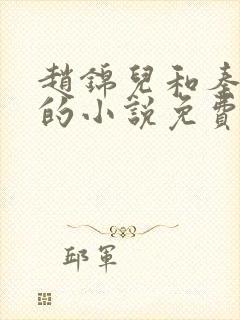 趙錦兒和秦
的小說免費
邱軍